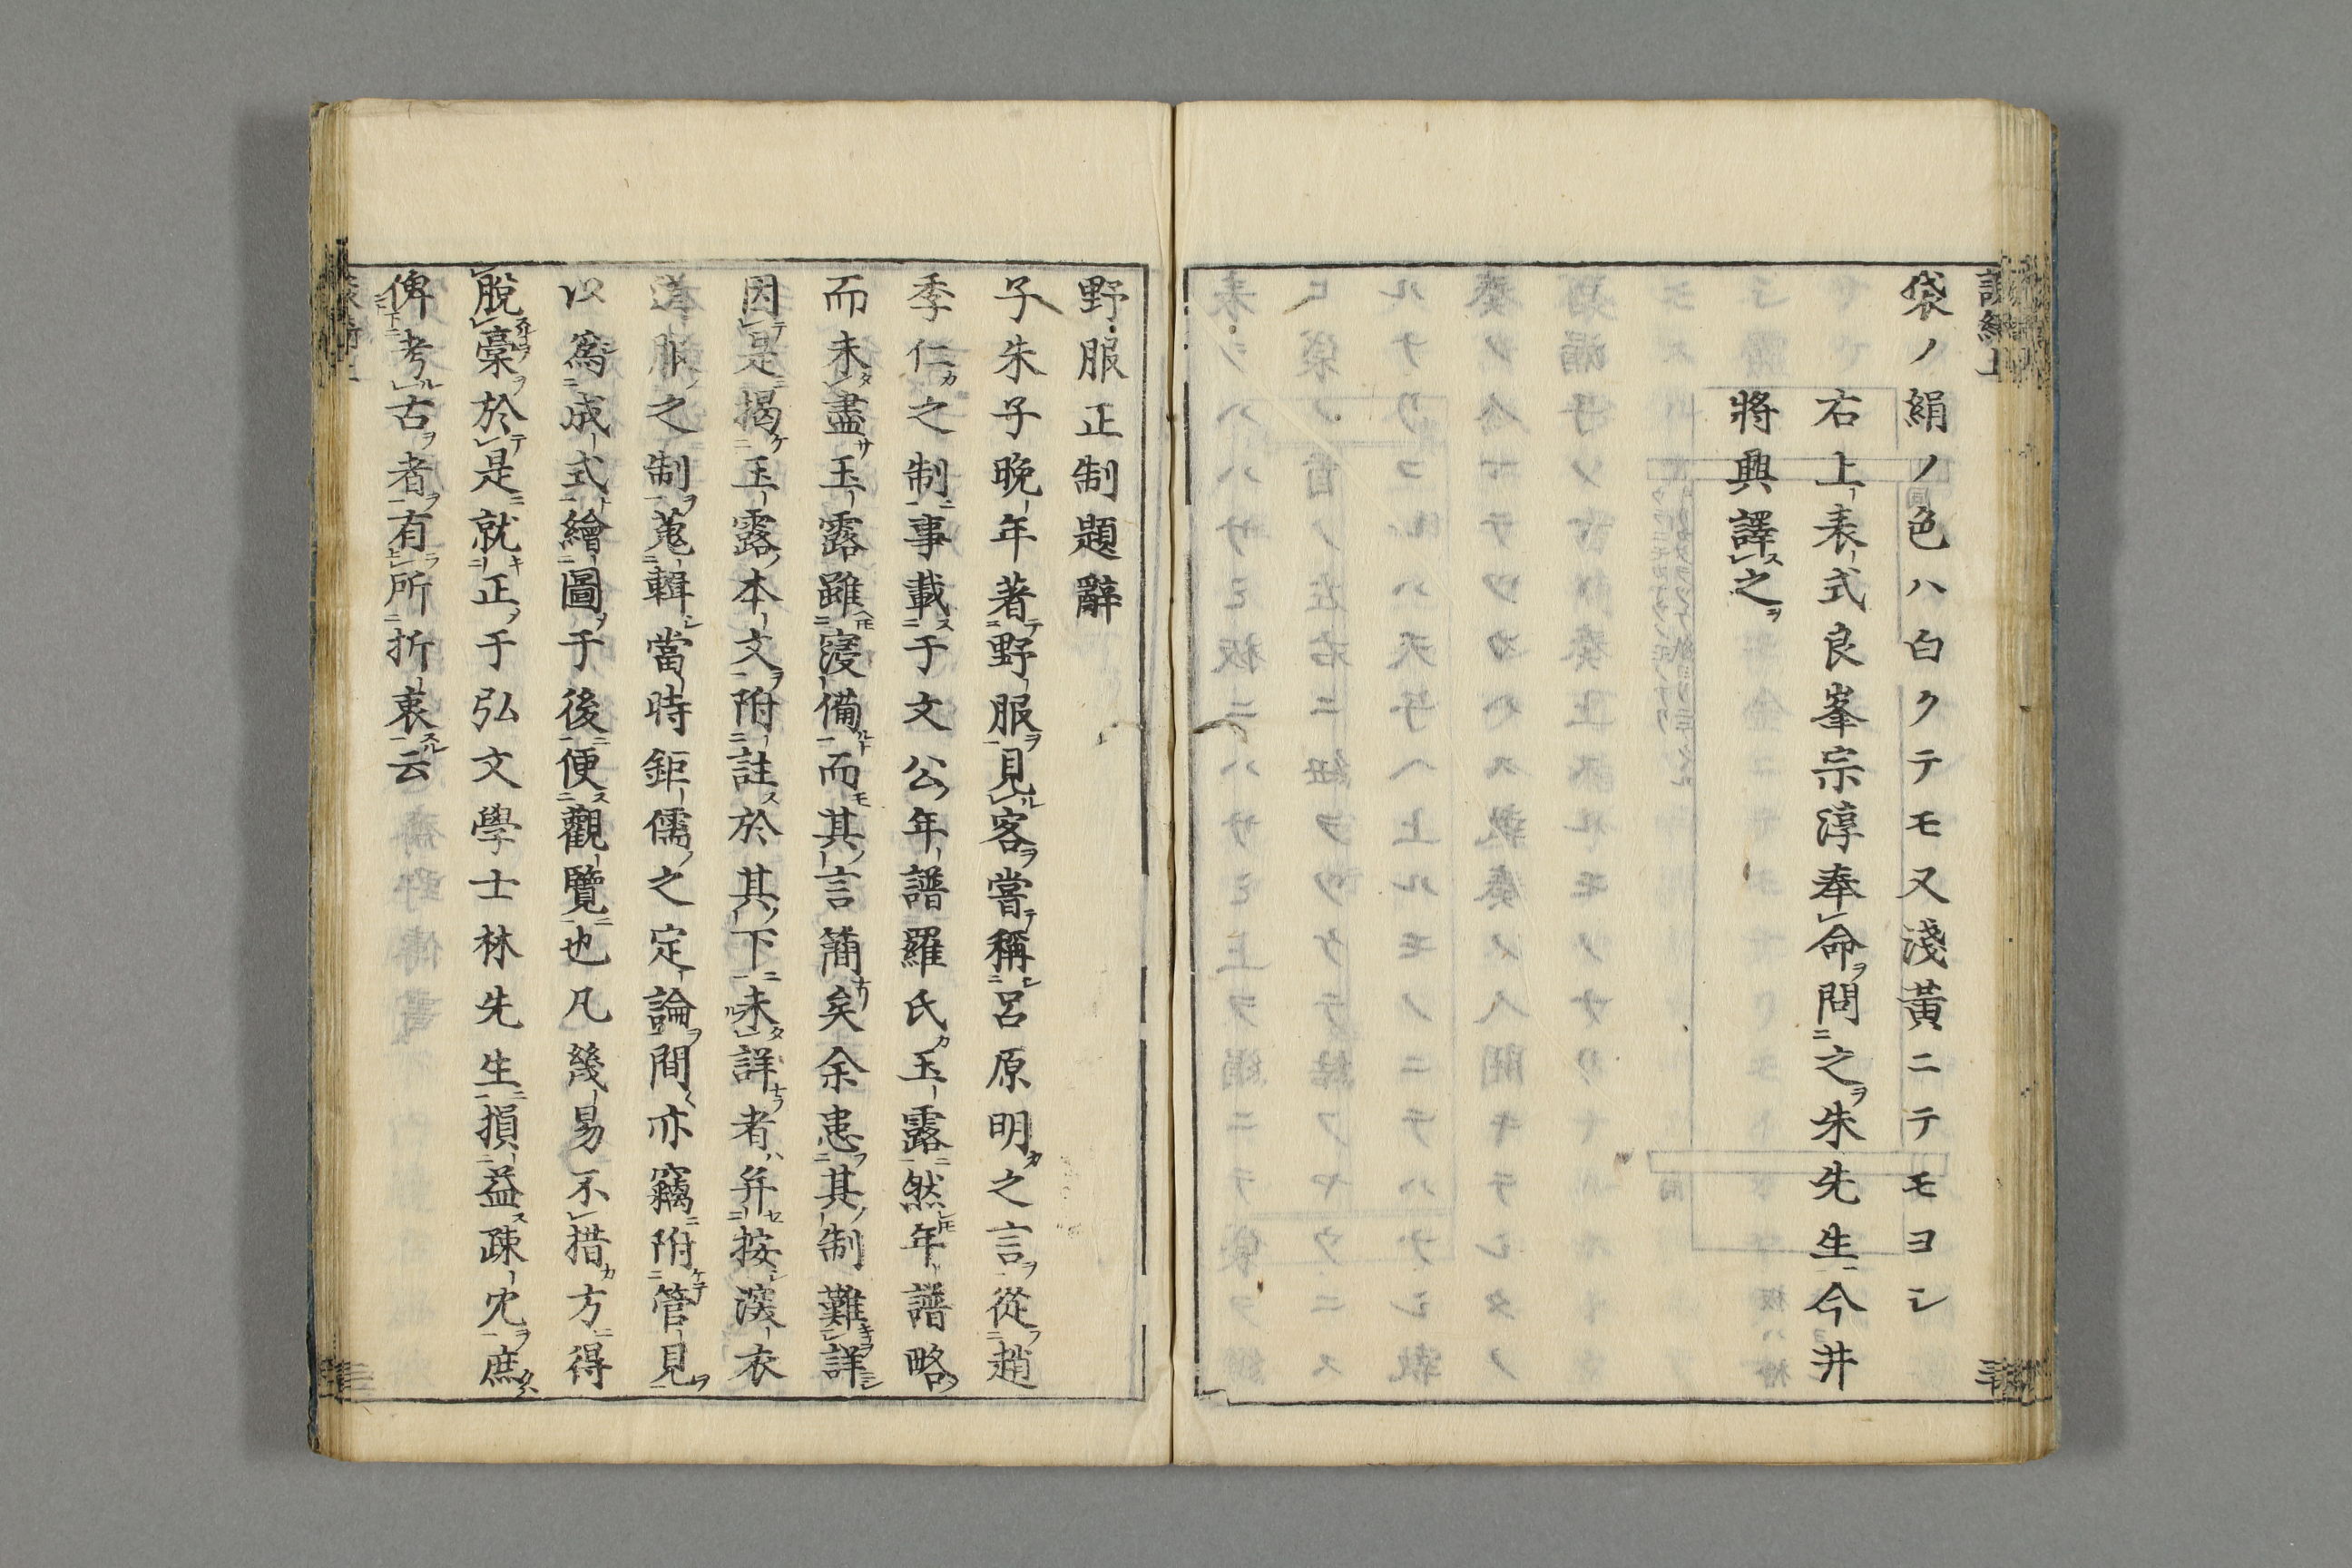 袋ノ絹ノ色ハ白クテモ又淺黃ニテモヨシ
右上表式良峯宗淳奉命問之朱先生今井
將興譯之
野服正制題辭
子朱子晚年著野服見客嘗稱呂原明之言從趙
季仁之制事載于文公年譜羅氏玉露然年譜略
而未盡玉露雖寖備而其言簡矣余患其制難詳
因是揭玉露本文附註於其下未詳者并按深衣
道服之制蒐輯當時鉅儒之定論間亦竊附管見
以爲成式繪圖于後便觀覽也凡幾易不措方得
脫稾於是就正于弘文學士林先生損益疎冗庶
俾考古者有所折衷云